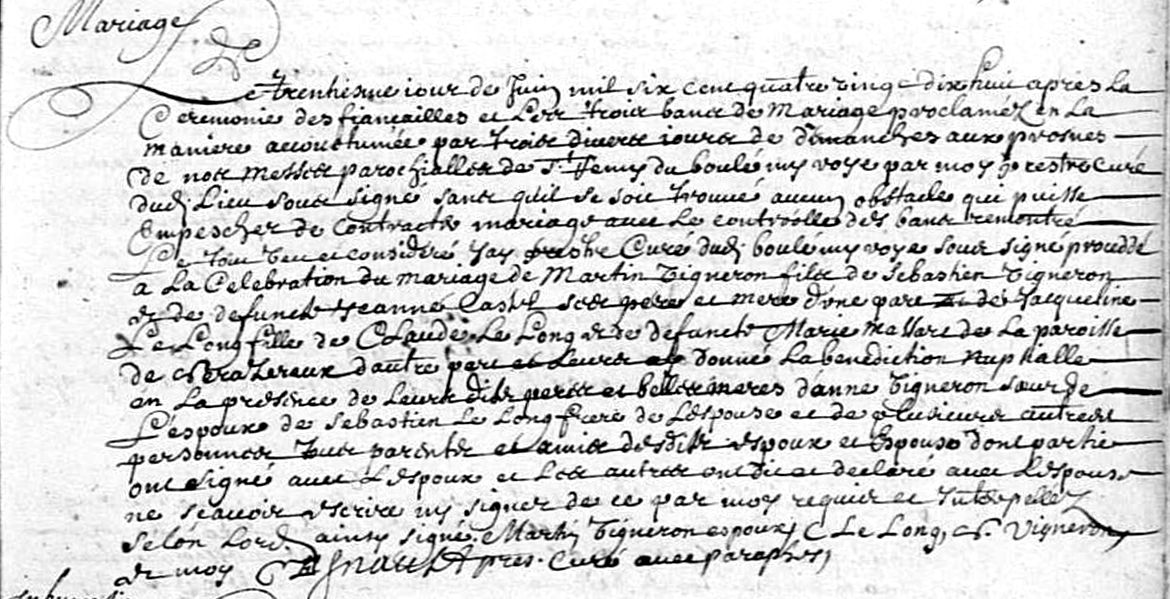 Mariage
Le trentiesme iour de Juin mil six cent quatre vingt dixhuit apres La
Ceremonie des fiancailles et Les trois bans de Mariage proclaméz en La
maniere accoustumée par trois divers iours de dimanches aux prosnes
de nos messes parochialles de St Remy du boulé my voye par moy prestre Curé
dud. Lieu sous signé sans quil se soit trouvé aucun obstacle qui puisse
Empescher de Contracter mariage avec Le controolle des bans remontré
Le tout veu et consideré Jay prestre Curé dud. boulé my voye sous signé proceddé
a La Celebration du mariage de Martin Vigneron fils de Sebastien Vigneron
et de defuncte Jeanne ses pere et mere d'une part et de Jacqueline
Le Long fille de Claude Le Long et de defuncte Marie Massart de La paroisse
de d'autre part et Leurs ay donné La benediction nuptialle
en La presence de Leurs dits peres et belles meres d'anne Vigneron sœur de
L'espoux de Sebastien Le Long frere de L'espouse et de plusieurs autres
personnes tous parents et amis desdits espoux et Espouse dont partie
ont signé avec L'espoux et Les autres ont dit et declaré avec L'espouse
ne scavoir escrire ny signer de ce par moy requis et Interpellez
selon Lord. ainsy signé. Martin Vigneron espoux, C Le Long, Vigneron,
et moy pres. Curé avec paraphes,